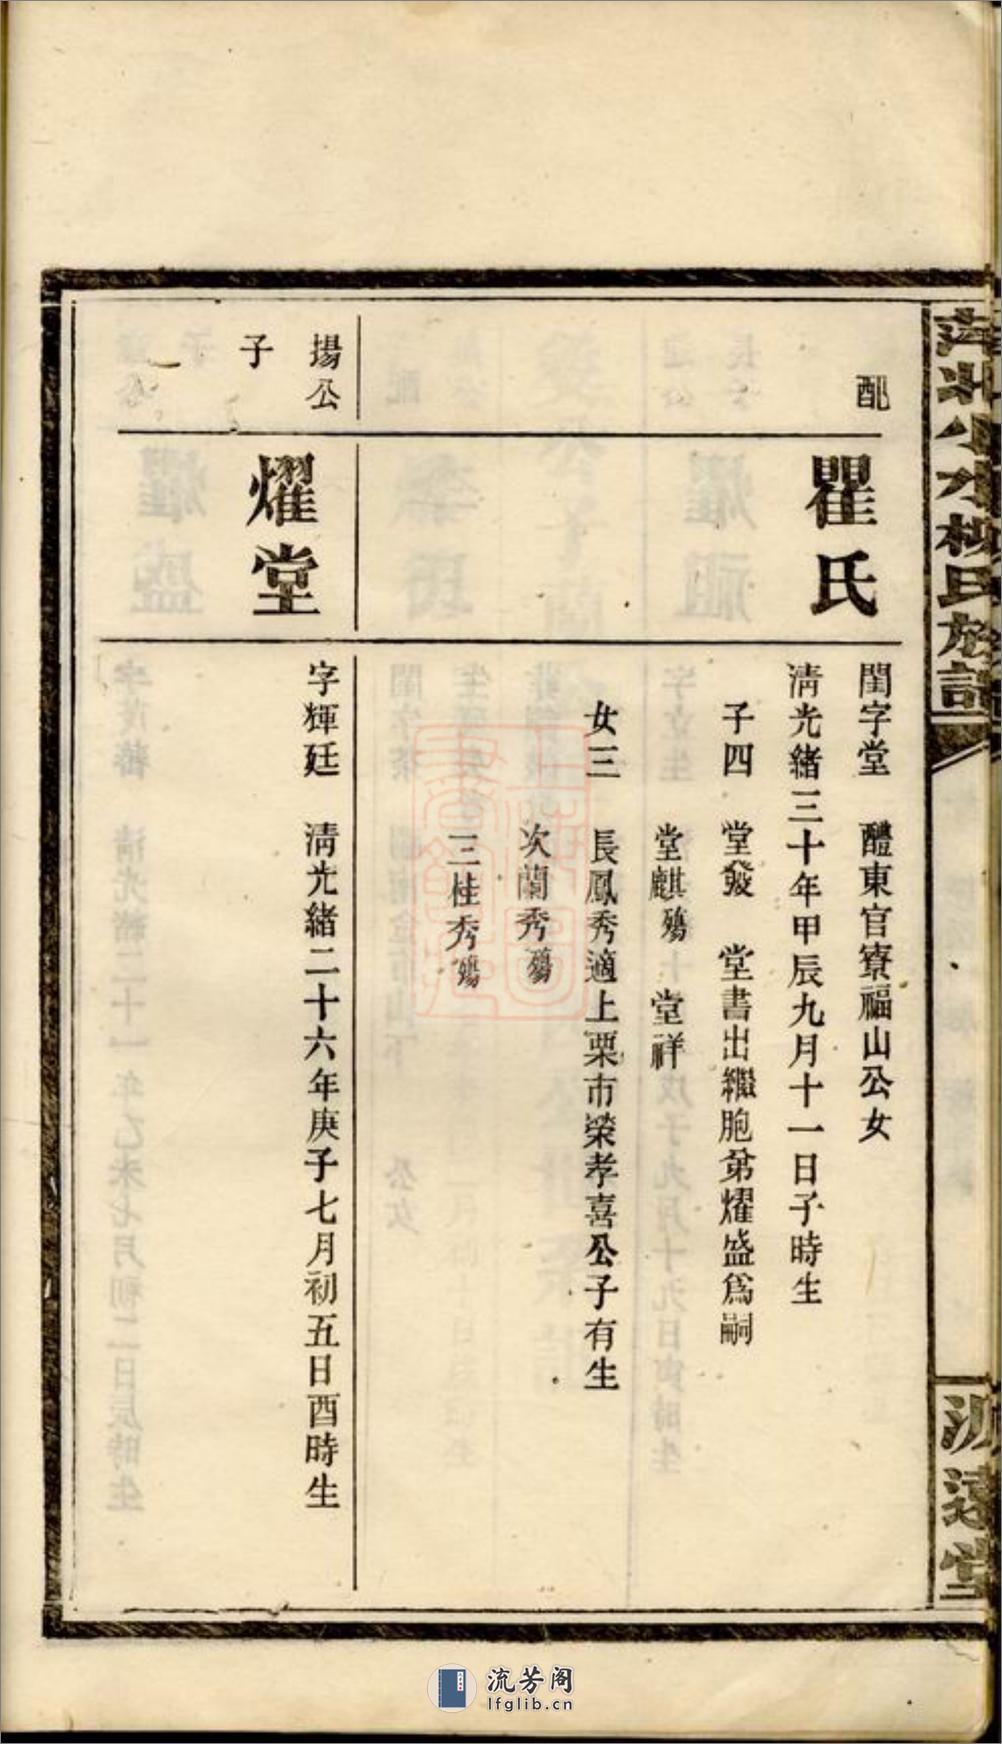 萍北小水柳氏族譜
源遠堂
配
瞿氏
閨字堂　醴東官寮福山公女
清光緒三十年甲辰九月十一日子時生
子四　堂發　堂書出繼胞弟耀盛爲嗣
堂麒殤　堂祥
女三　長鳳秀適上栗市榮孝喜公子有生
次蘭秀殤
三桂秀殤
揚公
子
耀堂
字輝廷　清光緒二十六年庚子七月初五日酉時生
流芳阁
lfglib.cn